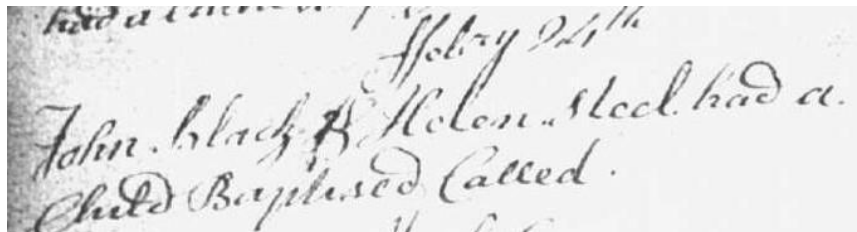 had a
ffebry 24th
John black & Helen Meel had a
Child Baptised Called